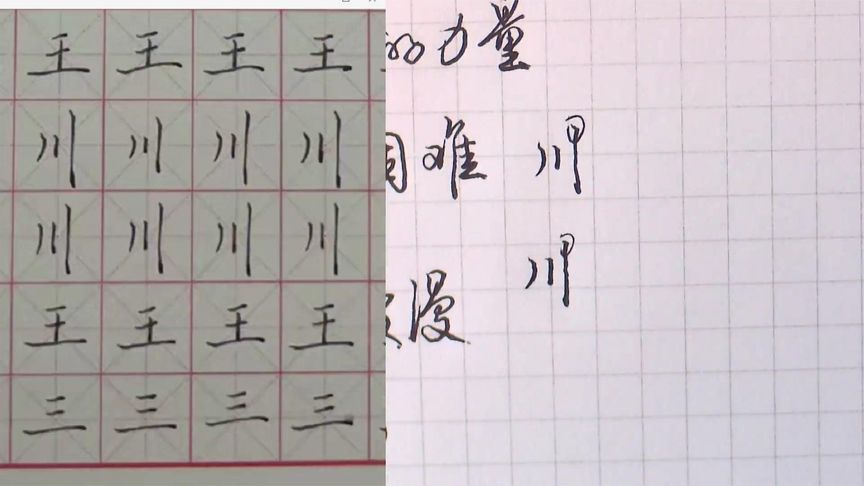 王王王王
川川川川
川川川川
王王王王
三三三三
的力量
困难 川
川
漫